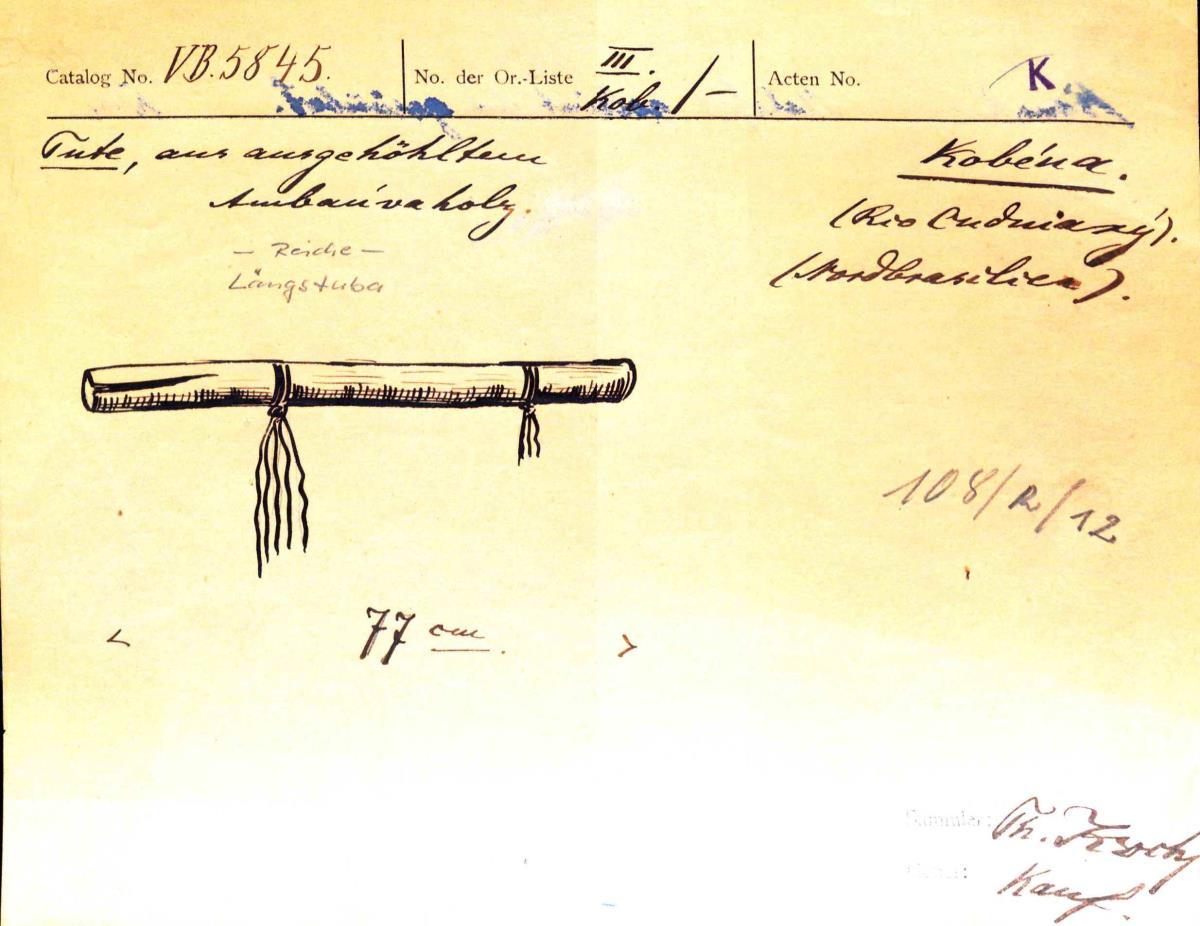 Catalog No. VB. 5845. No. der Or.-Liste III. Kob. /– Acten No. K
Tute, aus ausgehöhltem
Ambaúvaholz.
– Reiche –
Längstuba
Kobéua.
(Rio Cuduiarý).
(Nordbrasilien).
108/R/12
< 77 cm. >
Sammler: Th. Koch
Kauf.